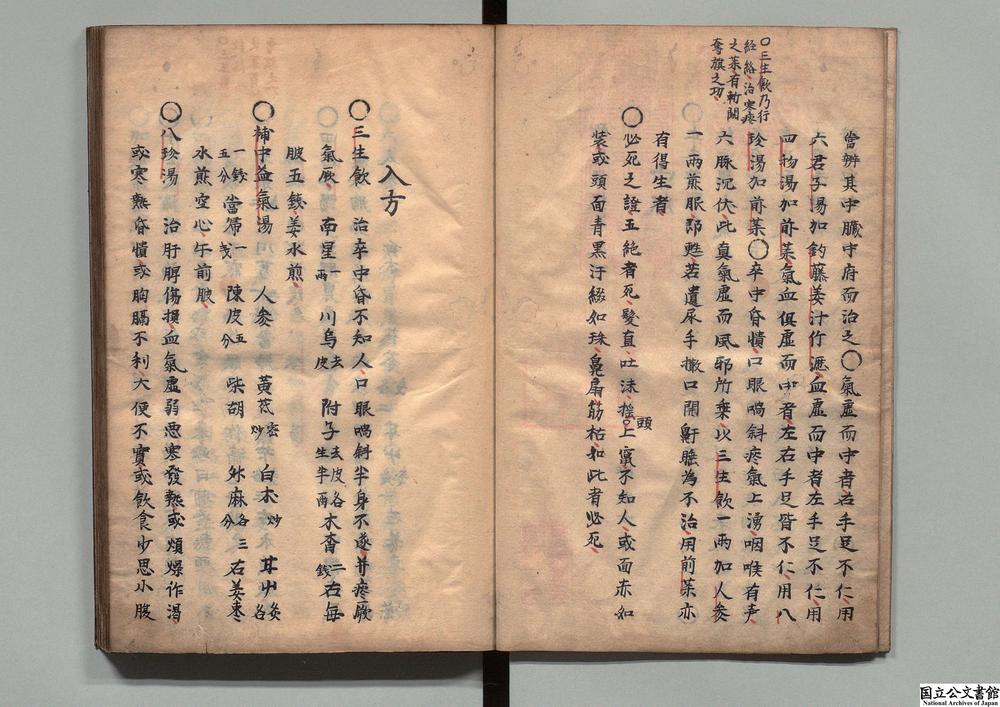 〇三生飲乃行
経絡治寒痰
之藥有斬關
奪旗之功
當辨其中臓中府而治之〇氣虛而中者右手足不仁用
六君子湯加釣藤姜汁竹瀝血虛而中者左手足不仁用
四物湯加前藥氣血俱虛而中者左右手足皆不仁用八
珍湯加前藥〇卒中昏憒口眼喎斜痰氣上湧咽喉有声
六脉沉伏此真氣虛而風邪所乗以三生飲一兩加人參
一兩煎服即甦若遺尿手撒口開鼾膽為不治用前藥亦
有得生者
〇必死之證五絕者死髮直吐沫揺頭上竄不知人或面赤如
装或頭面青黑汗綴如珠鳧扁筋枯如此者必死
入方
〇三生飲 治卒中昏不知人口眼喎斜半身不遂并痰厥
氣厥 南星一兩 川烏去皮 附子去皮各生半兩 木香二錢 右每
服五錢姜水煎
〇補中益氣湯 人參 黃芪密炒 白术炒 甘艸炙各
一錢五分 當歸一戔 陳皮五分 柴胡 升麻各三分 右姜棗
水煎空心午前服
〇八珍湯 治肝脾傷損血氣虛弱惡寒發熱或煩燥作渴
或寒熱昏憒或胸膈不利大便不實或飲食少思小腹
国立公文書館
National Archives of Japan